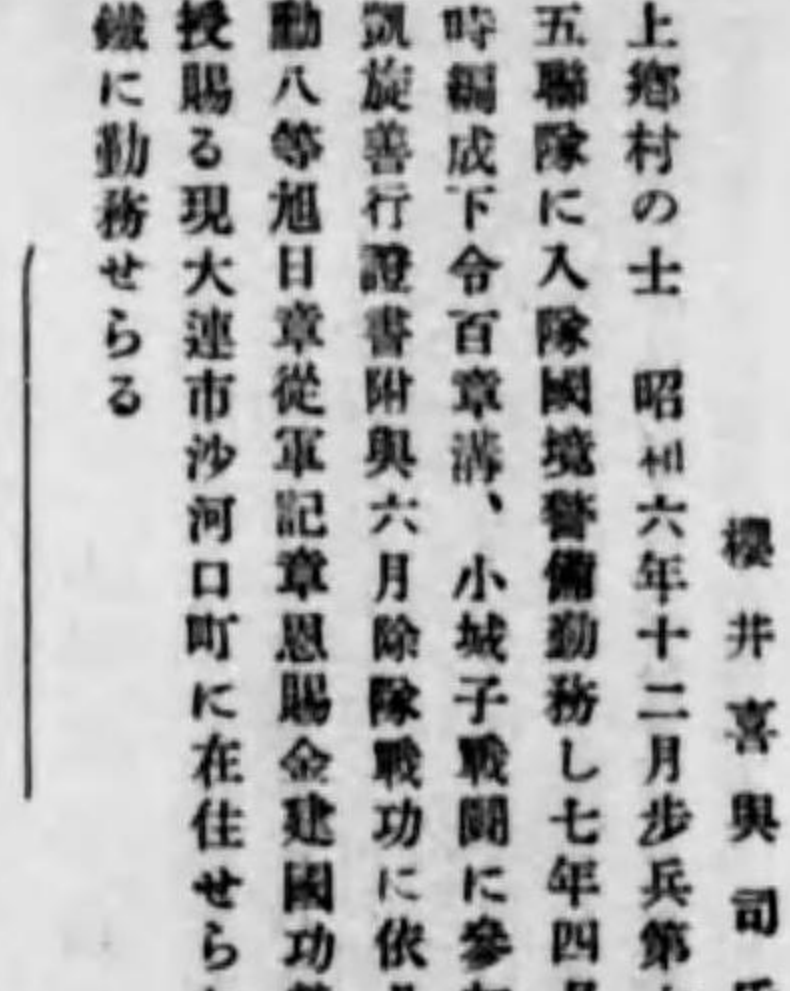 櫻井喜與司
上鄕村の士　昭和六年十二月步兵第
五聯隊に入隊國境警備勤務し七年四
時編成下令百章溝、小城子戰鬪に參
凱旋善行證書附與六月除隊戰功に依
勳八等旭日章從軍記章恩賜金建國功
授賜る現大連市沙河口町に在住せら
鐵に勤務せらる